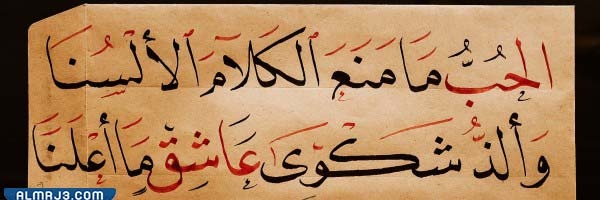 الحُبُّ مَا مَنَعَ الكَلَامَ الأَلْسُنَا
وَأَلَذُّ شَكْوَى عَاشِقٍ مَا أَعْلَنَا
ALMRJ3.COM